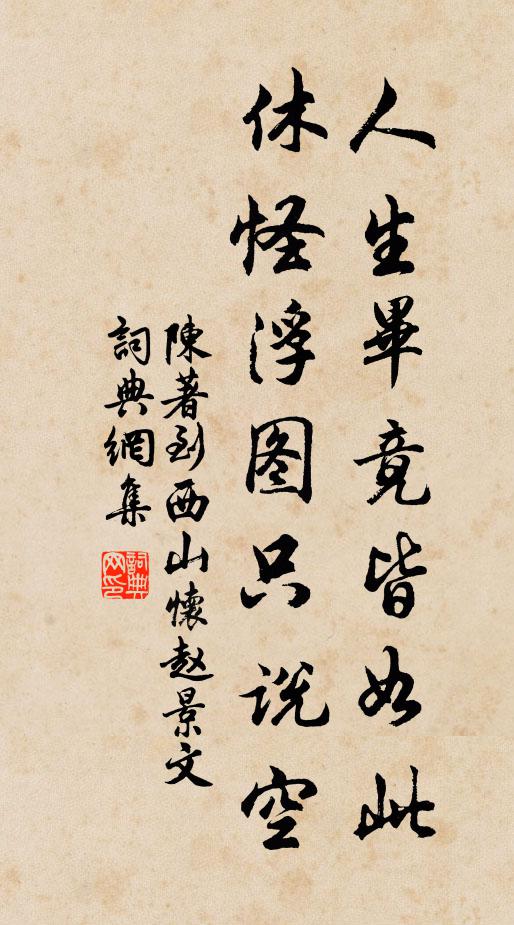 人生畢竟皆如此
休怪浮图只説空
陳著到西山懷赵景文
詞典網集
詞典网印